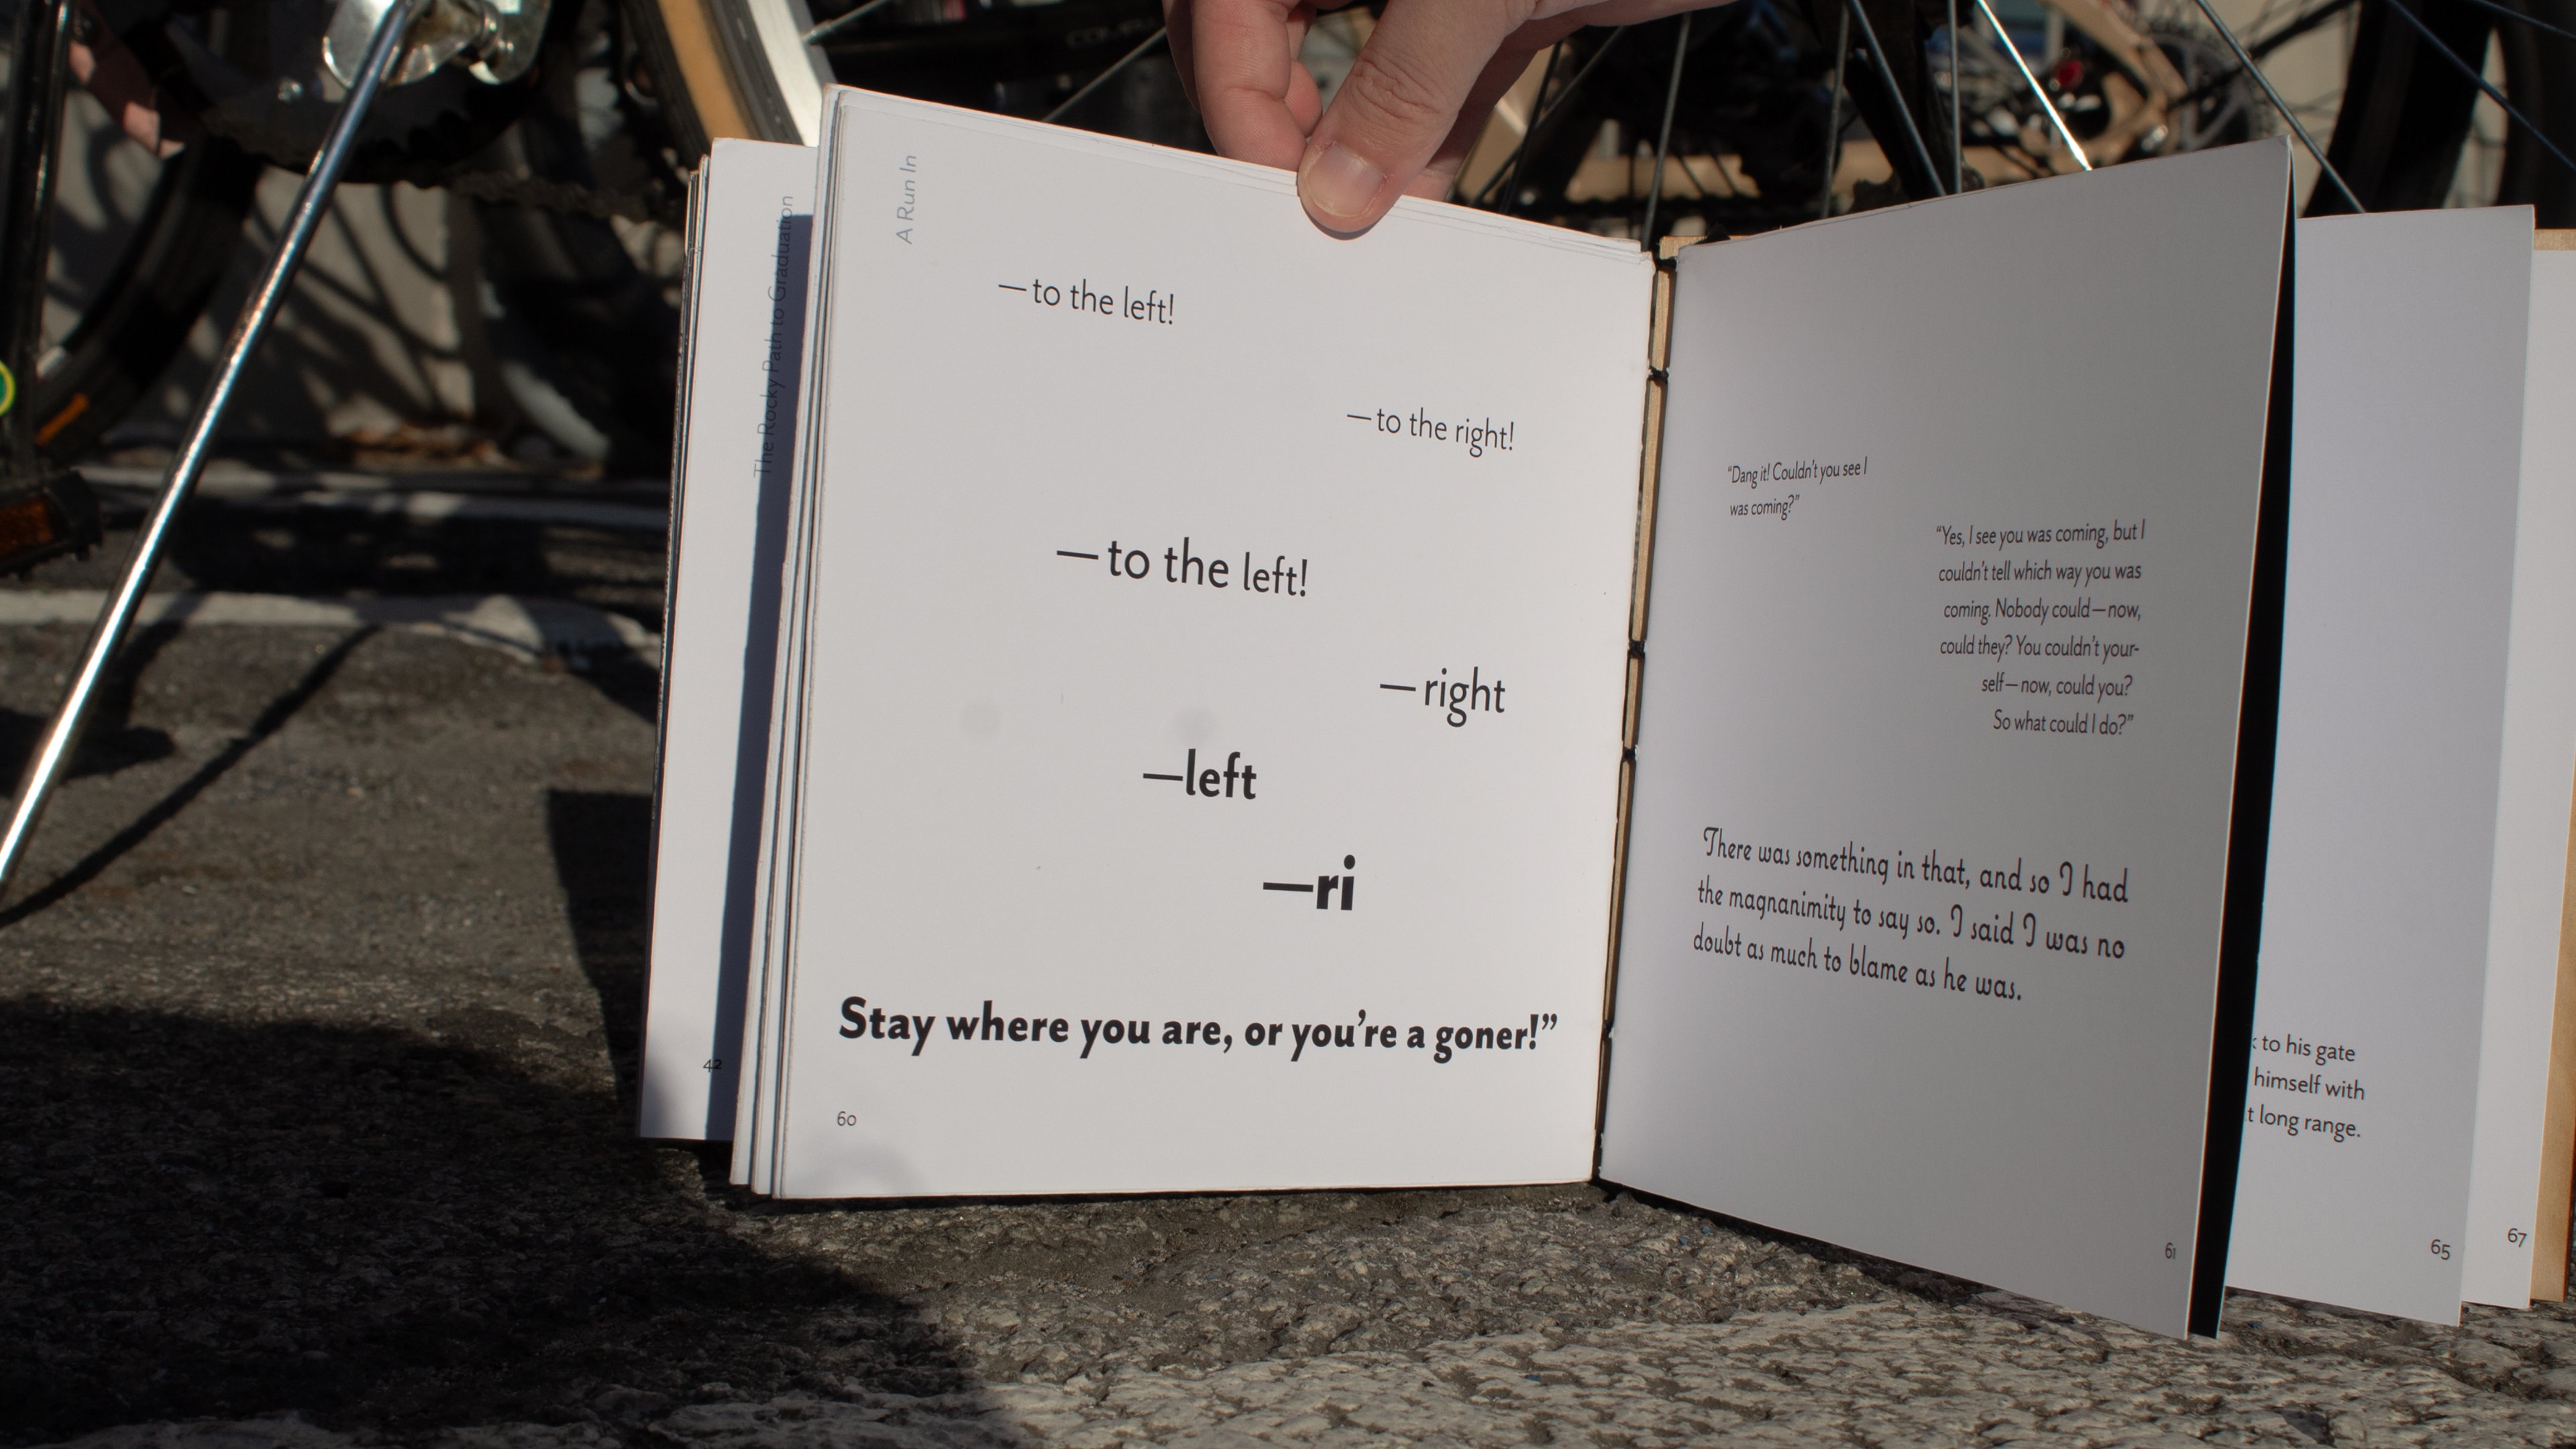 The Rocky Path to Graduation
42
A Run In
—to the left!
—to the right!
—to the left!
—right
—left
—ri
Stay where you are, or you're a goner!”
60
“Dang it! Couldn't you see I
was coming?”
“Yes, I see you was coming, but I
couldn't tell which way you was
coming. Nobody could—now,
could they? You couldn't your-
self—now, could you?
So what could I do?”
There was something in that, and so I had
the magnanimity to say so. I said I was no
doubt as much to blame as he was.
61
to his gate
himself with
long range.
65
67